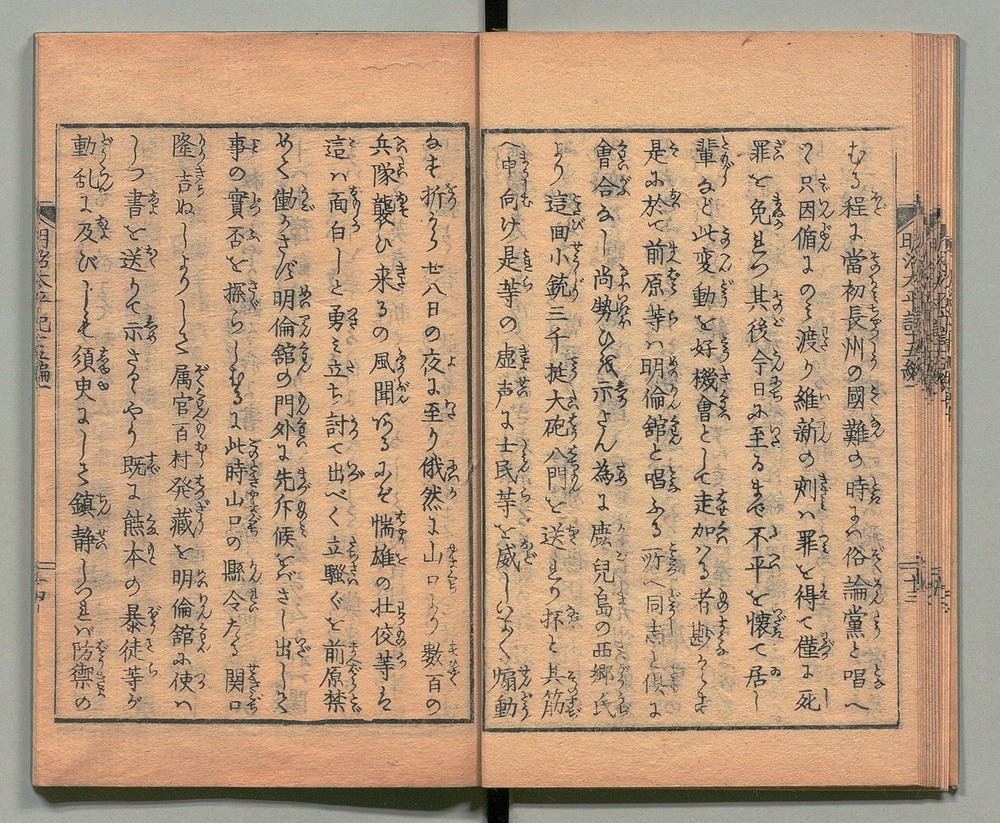 むる程に當初長州の國難の時は俗論黨と唱へ
て只因循にのミ渡り維新の刻ハ罪を得て僅に死
罪を免且つ其後今日に至るまで不平を懐て居し
輩など此変動を好機會として走加ハる者尠からず
是に於て前原等ハ明倫舘と唱ふる所へ同志と倶に
會合なし尚勢ひを示さん為に鹿兒島の西郷氏
より這回小銃三千挺大砲八門を送れり抔と其筋
へ申向け是等の虚声に士民等を威しいよいよ煽動
なす折から廿八日の夜に至り俄然に山口より數百の
兵隊襲ひ来るの風聞あるにぞ惴雄の壮佼等は
這ハ面白しと勇ミ立ち討て出べく立騒ぐを前原禁
めて働かさず明倫舘の門外に先斥候をバさし出して
事の實否を探らしむるに此時山口の縣令たる関口
隆吉ぬしよりして属官百村発藏を明倫舘に使ハ
しつ書を送りて示さるゝやう既に熊本の暴徒等が
動乱に及びしも須臾にして鎮静しつれバ防禦の
明治太平記五編
十三
明治太平記五編
十四